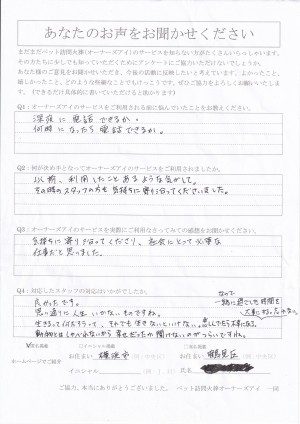 あなたのお声をお聞かせください
まだまだペット訪問火葬(オーナーズアイ)のサービスを知らない方がたくさんいらっしゃいます。
その方たちに少しでも知っていただくためにアンケートにご協力いただけないでしょうか。
あなた様のご意見をお聞かせいただき、今後の活動に反映したいと考えています。よかったこと、
嬉しかったこと、どのような些細なことでもけっこうです。ぜひご協力をよろしくお願いいたします。
(できるだけ具体的に書いていただけると助かります)
Q1：オーナーズアイのサービスをご利用される前に悩んでいたことをお教えください。
深夜に電話できるか。
何時になったら電話できるか。
Q2：何が決め手となってオーナーズアイのサービスをご利用されましたか。
以前、利用したことあるような気がして。
その時のスタッフの方も気持ちに寄り沿ってくださいました。
Q3：オーナーズアイのサービスを実際にご利用なさってみての感想をお聞かせください。
気持ちに寄り沿ってくださり、社会にとって必要な
仕事だと思いました。
Q4：対応したスタッフの対応はいかがでしたか。
良かったです。
なので
思い通りに人生いかないものですね。
一緒に過ごした時間を
生きるって何だろうって、それでも生きないといけない。
動物とはしゃべれないから幸せだったか聞けないのがつらいですね。
ホームページでご紹介
お住まい
お住まい 鶴見区
イニシャル
氏名
ご協力、本当にありがとうございました。 ペット訪問火葬オーナーズアイ 一同